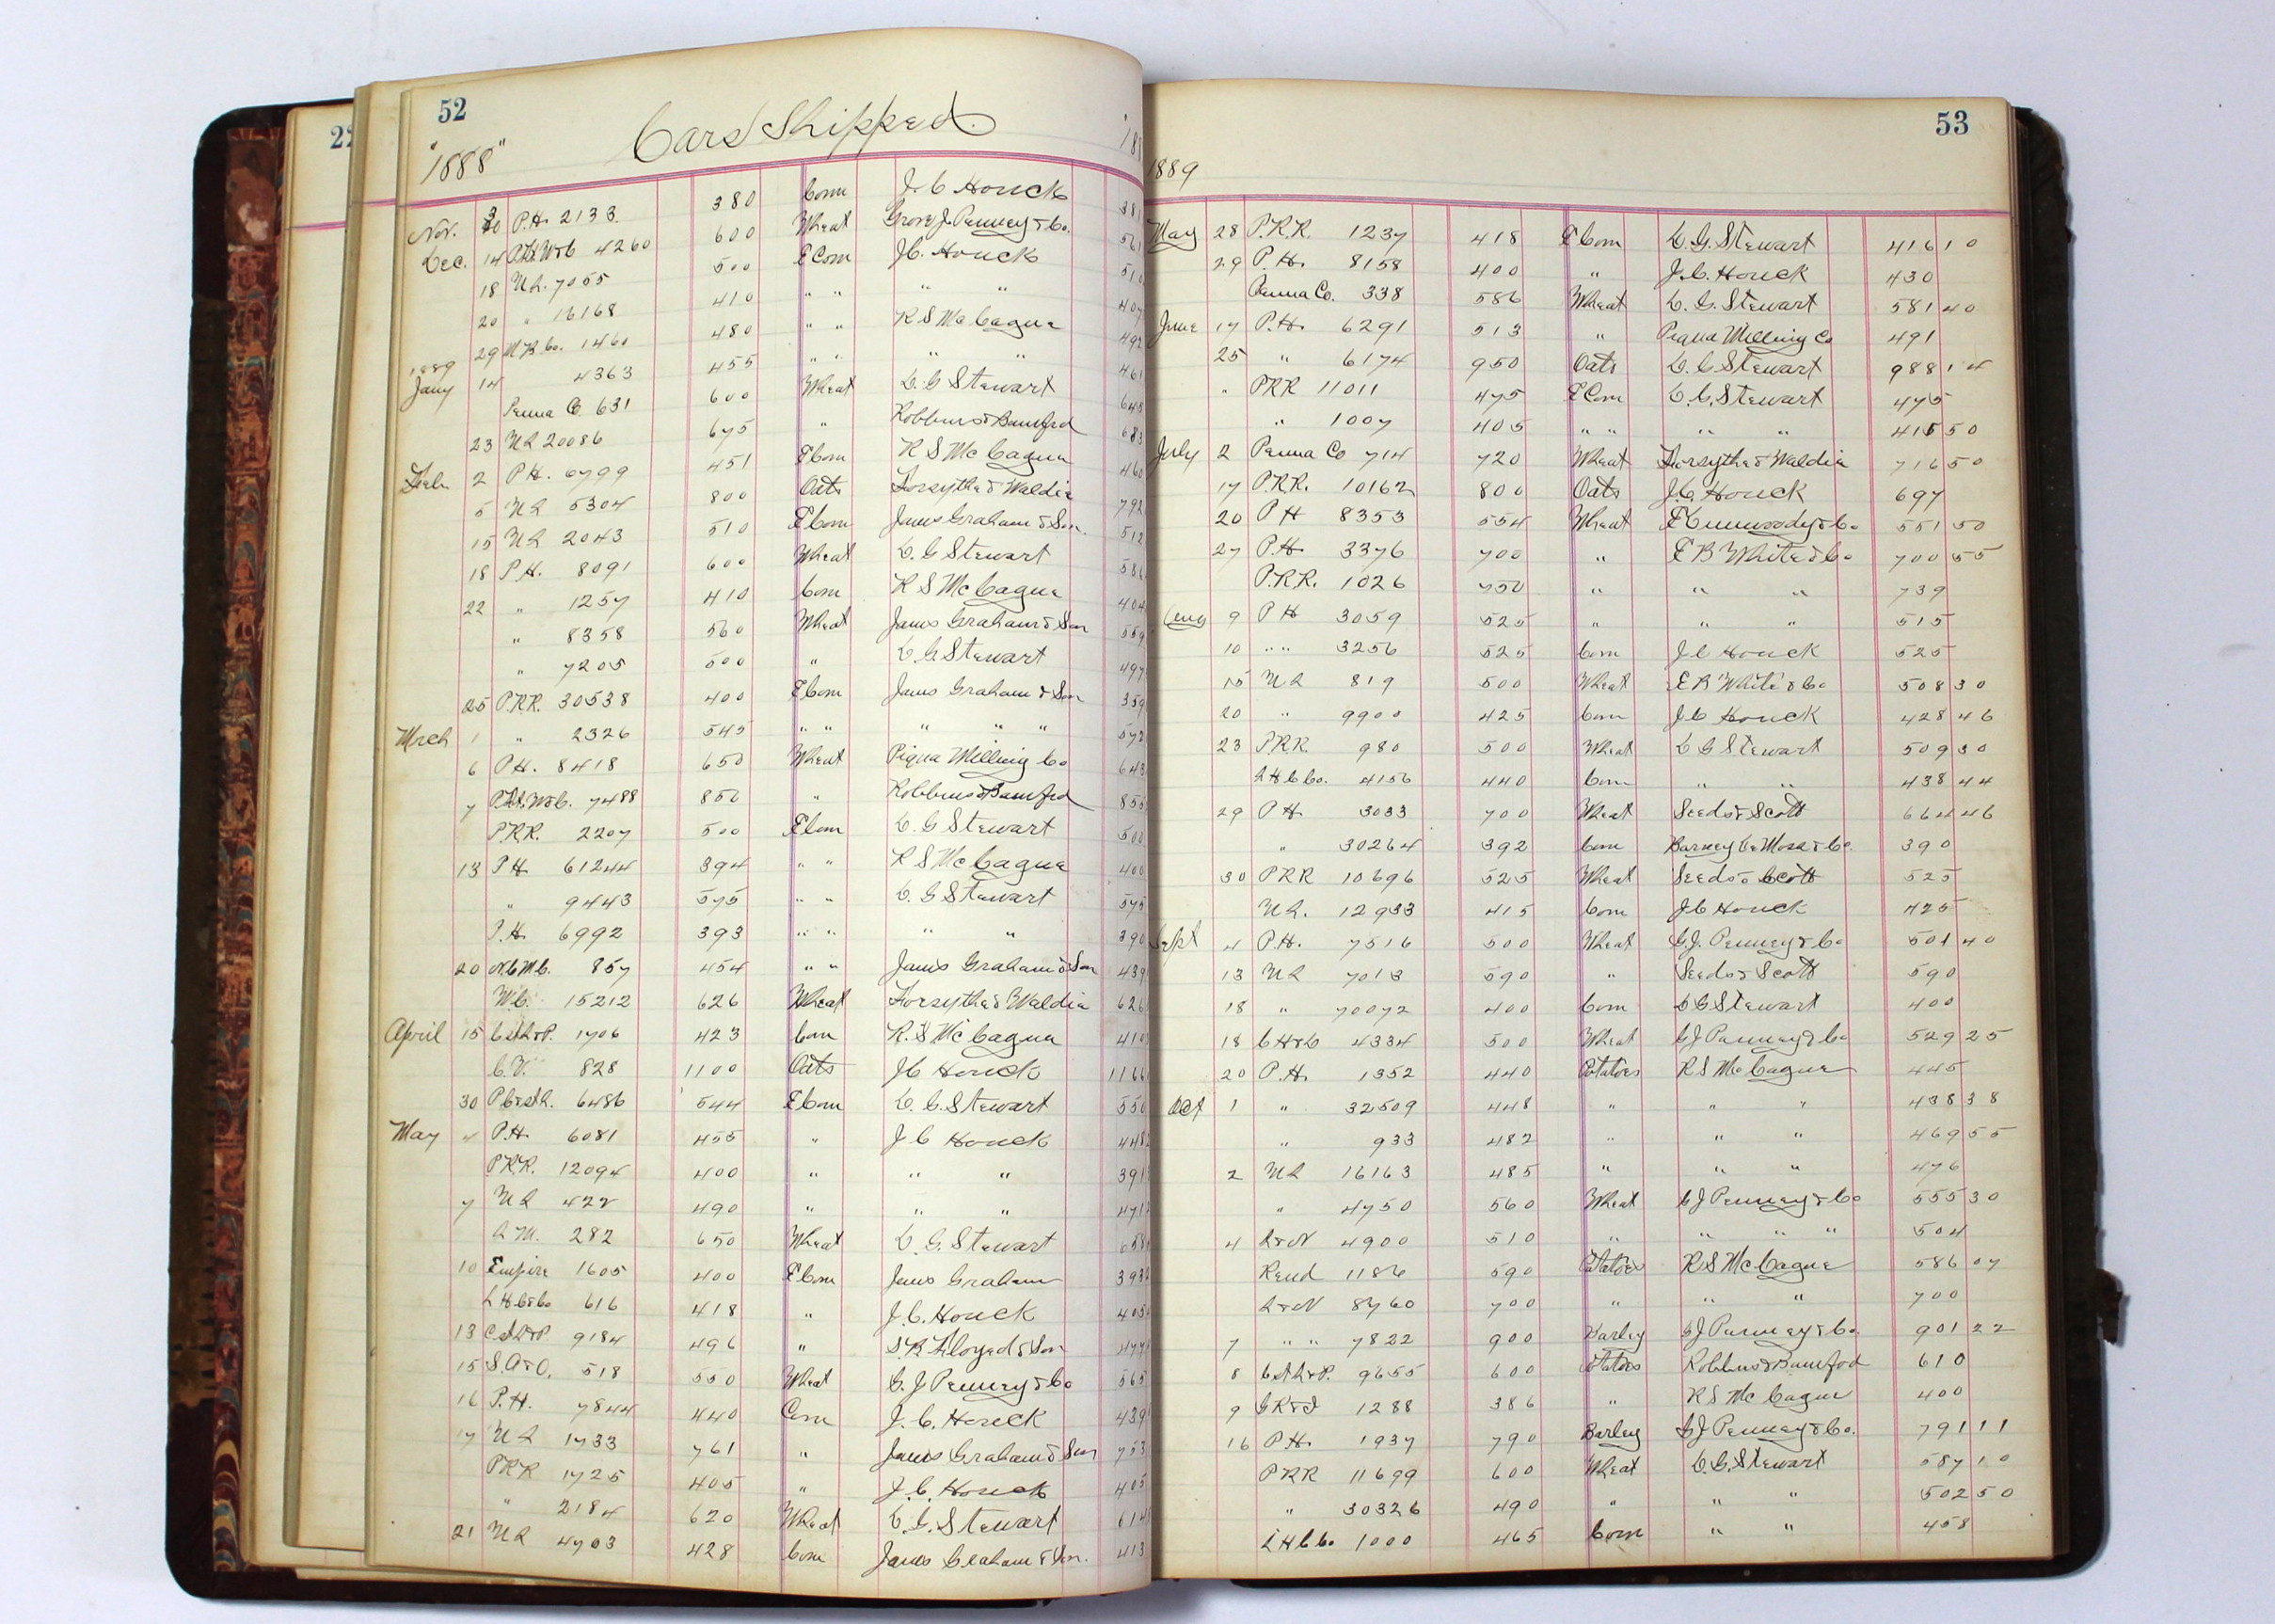 22
52
Cars Shipped
"1888"
Nov. 30 P.H. 2133. 380 Corn J. C Houck 381
Dec. 14 600 Wheat Grove J. Penney & Co. 561
4260
18 U L. 7055 500 E Corn J. C. Houck 510
20 " 16168 410 " " " " 407
29 1460 480 " " R S McCague 492
1889
Jany 14 4363 455 " " " " 461
Penna Co 631 600 Wheat D. G Stewart 645
23 U L 20086 675 " Robbins & Bamford 683
Feb 2 P H. 6799 451 E Corn R S McCague 460
5 U L 5304 800 Oats Forsythe & Waldie 792
15 U L 2043 510 E Corn James Graham & Son. 512
18 P H. 8091 600 Wheat D. G Stewart 586
22 " 1257 410 Corn R S McCague 404
" 8358 560 Wheat James Graham & Son 559
" 7205 500 " D G Stewart 497
25 P.R.R. 30538 400 E Corn James Graham & Son 359
Mrch 1 " 2326 545 " " " " " 572
6 P H. 8418 650 Wheat Piqua Milling Co 643
7 7488 850 " Robbins & Bamford 855
P.R.R. 2207 500 E Corn D. G Stewart 500
13 P H 61244 394 " " R S McCague 400
" 9443 575 " " D. G Stewart 575
P.H. 6992 393 " " " " 390
20 857 454 " " James Graham & Son 439
W.C. 15212 626 Wheat Forsythe & Waldie 626
April 15 C St L & P. 1706 423 Corn R. S McCague 410
C.V. 828 1100 Oats J C Houck 1166
30 P C & St L. 6486 544 E Corn D. G. Stewart 550
May 4 P.H. 6081 455 " J C Houck 448
P.R.R. 12094 400 " " " 391
7 U L 422 490 " " " 471
A M. 282 650 Wheat D. G. Stewart 658
10 Empire 1605 400 E Corn James Graham 393
616 418 " J. C. Houck 405
13 C St L & P. 9184 496 " S. R. Floyed & Son 477
15 S. A & O, 518 550 Wheat G. J Penney & Co 565
16 P. H. 7844 440 Corn J. C. Houck 439
17 U L 1733 761 " James Graham & Son 753
P R R 1725 405 " J. C. Houck 405
" 2184 620 Wheat D. G. Stewart 614
21 U L 4703 428 Corn James Graham & Son. 413
53
1889
May 28 P.R.R. 1237 418 E Corn D. G. Stewart 416 10
29 P. H. 8158 400 " J. C. Houck 430
Penna Co. 338 586 Wheat D. G. Stewart 581 40
June 17 P.H. 6291 513 " Piqua Milling Co 491
25 " 6174 950 Oats D. G. Stewart 988 14
" P R R 11011 475 E Corn D. G. Stewart 475
" 1007 405 " " " " 415 50
July 2 Penna Co 714 720 Wheat Forsythe & Waldie 716 50
17 P.R.R. 10162 800 Oats J. C. Houck 697
20 P H 8353 554 Wheat 551 50
27 P.H. 3376 700 " E B White & Co 700 55
P.R.R. 1026 750 " " " 739
Aug 9 P H 3059 525 " " " 515
10 " " 3256 525 Corn J C Houck 525
15 U L 819 500 Wheat E B White & Co 508 30
20 " 9900 425 Corn J C Houck 428 46
23 P.R.R. 980 500 Wheat D G Stewart 509 30
4156 440 Corn " " 438 44
29 P H 3033 700 Wheat Seeds & Scott 664 46
" 30264 392 Corn 390
30 P R R 10696 525 Wheat Seeds & Scott 525
U L. 12933 415 Corn J C Houck 425
Sept 4 P.H. 7516 500 Wheat G. J. Penney & Co 501 40
13 U L 7013 590 " Seeds & Scott 590
18 " 70072 400 Corn D G Stewart 400
18 C H & D 4334 500 Wheat G J Penney & Co 529 25
20 P.H. 1352 440 Potatoes R S McCague 445
Oct 1 " 32509 448 " " " 438 38
" 933 482 " " " 469 55
2 U L 16163 485 " " " 476
" 4750 560 Wheat G J Penney & Co 555 30
4 L & N 4900 510 " " " " 504
Rend 1186 590 Potatoes R S McCague 586 07
L & N 8760 700 " " " 700
7 " " 7822 900 Barley G J Penney & Co. 901 22
8 C St L & P. 9655 600 Potatoes Robbins & Bamford 610
9 G R & I 1288 386 " R S McCague 400
16 P H. 1937 790 Barley G J Penney & Co. 791 11
P R R 11699 600 Wheat D. G. Stewart 587 10
" 30326 490 " " " 502 50
1000 465 Corn " " 458